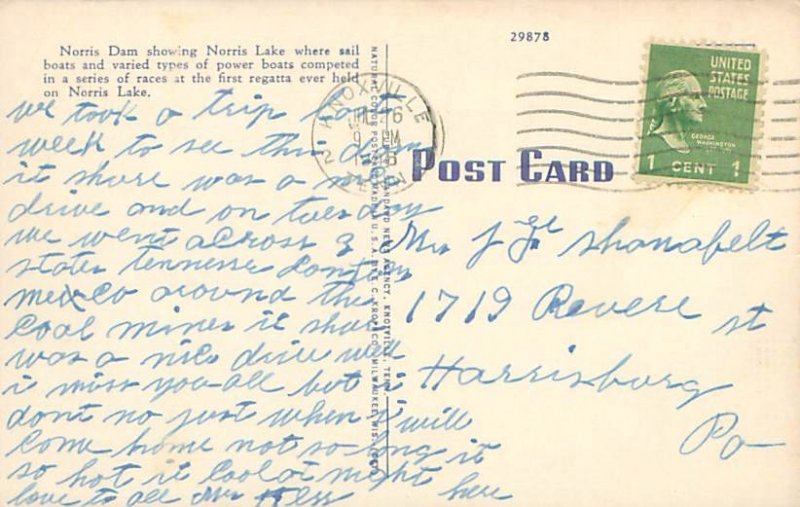 29878
Norris Dam showing Norris Lake where sail
boats and varied types of power boats competed
in a series of races at the first regatta ever held
on Norris Lake.
UNITED
STATES
POSTAGE
GEORGE
WASHINGTON
1 CENT 1
KNOXVILLE
26
PM
TENN
POST CARD
we took a trip last
week to see this dam
it shure was a nice
drive and on tuesday
we went across 3
states tennesse
mexico around the
coal mines it shure
was a nice drive well
i miss you all but i
dont no just when i will
come home not so long it
so hot it cool at night here
love to all Mr Hess
Mr J shanafelt
1719 Revere st
Harrisburg
Pa
NATURAL COLOR POST CARD MADE IN U.S.A. BY E. C. KROPP CO., MILWAUKEE, WIS.
STANDARD NEWS AGENCY, KNOXVILLE, TENN.